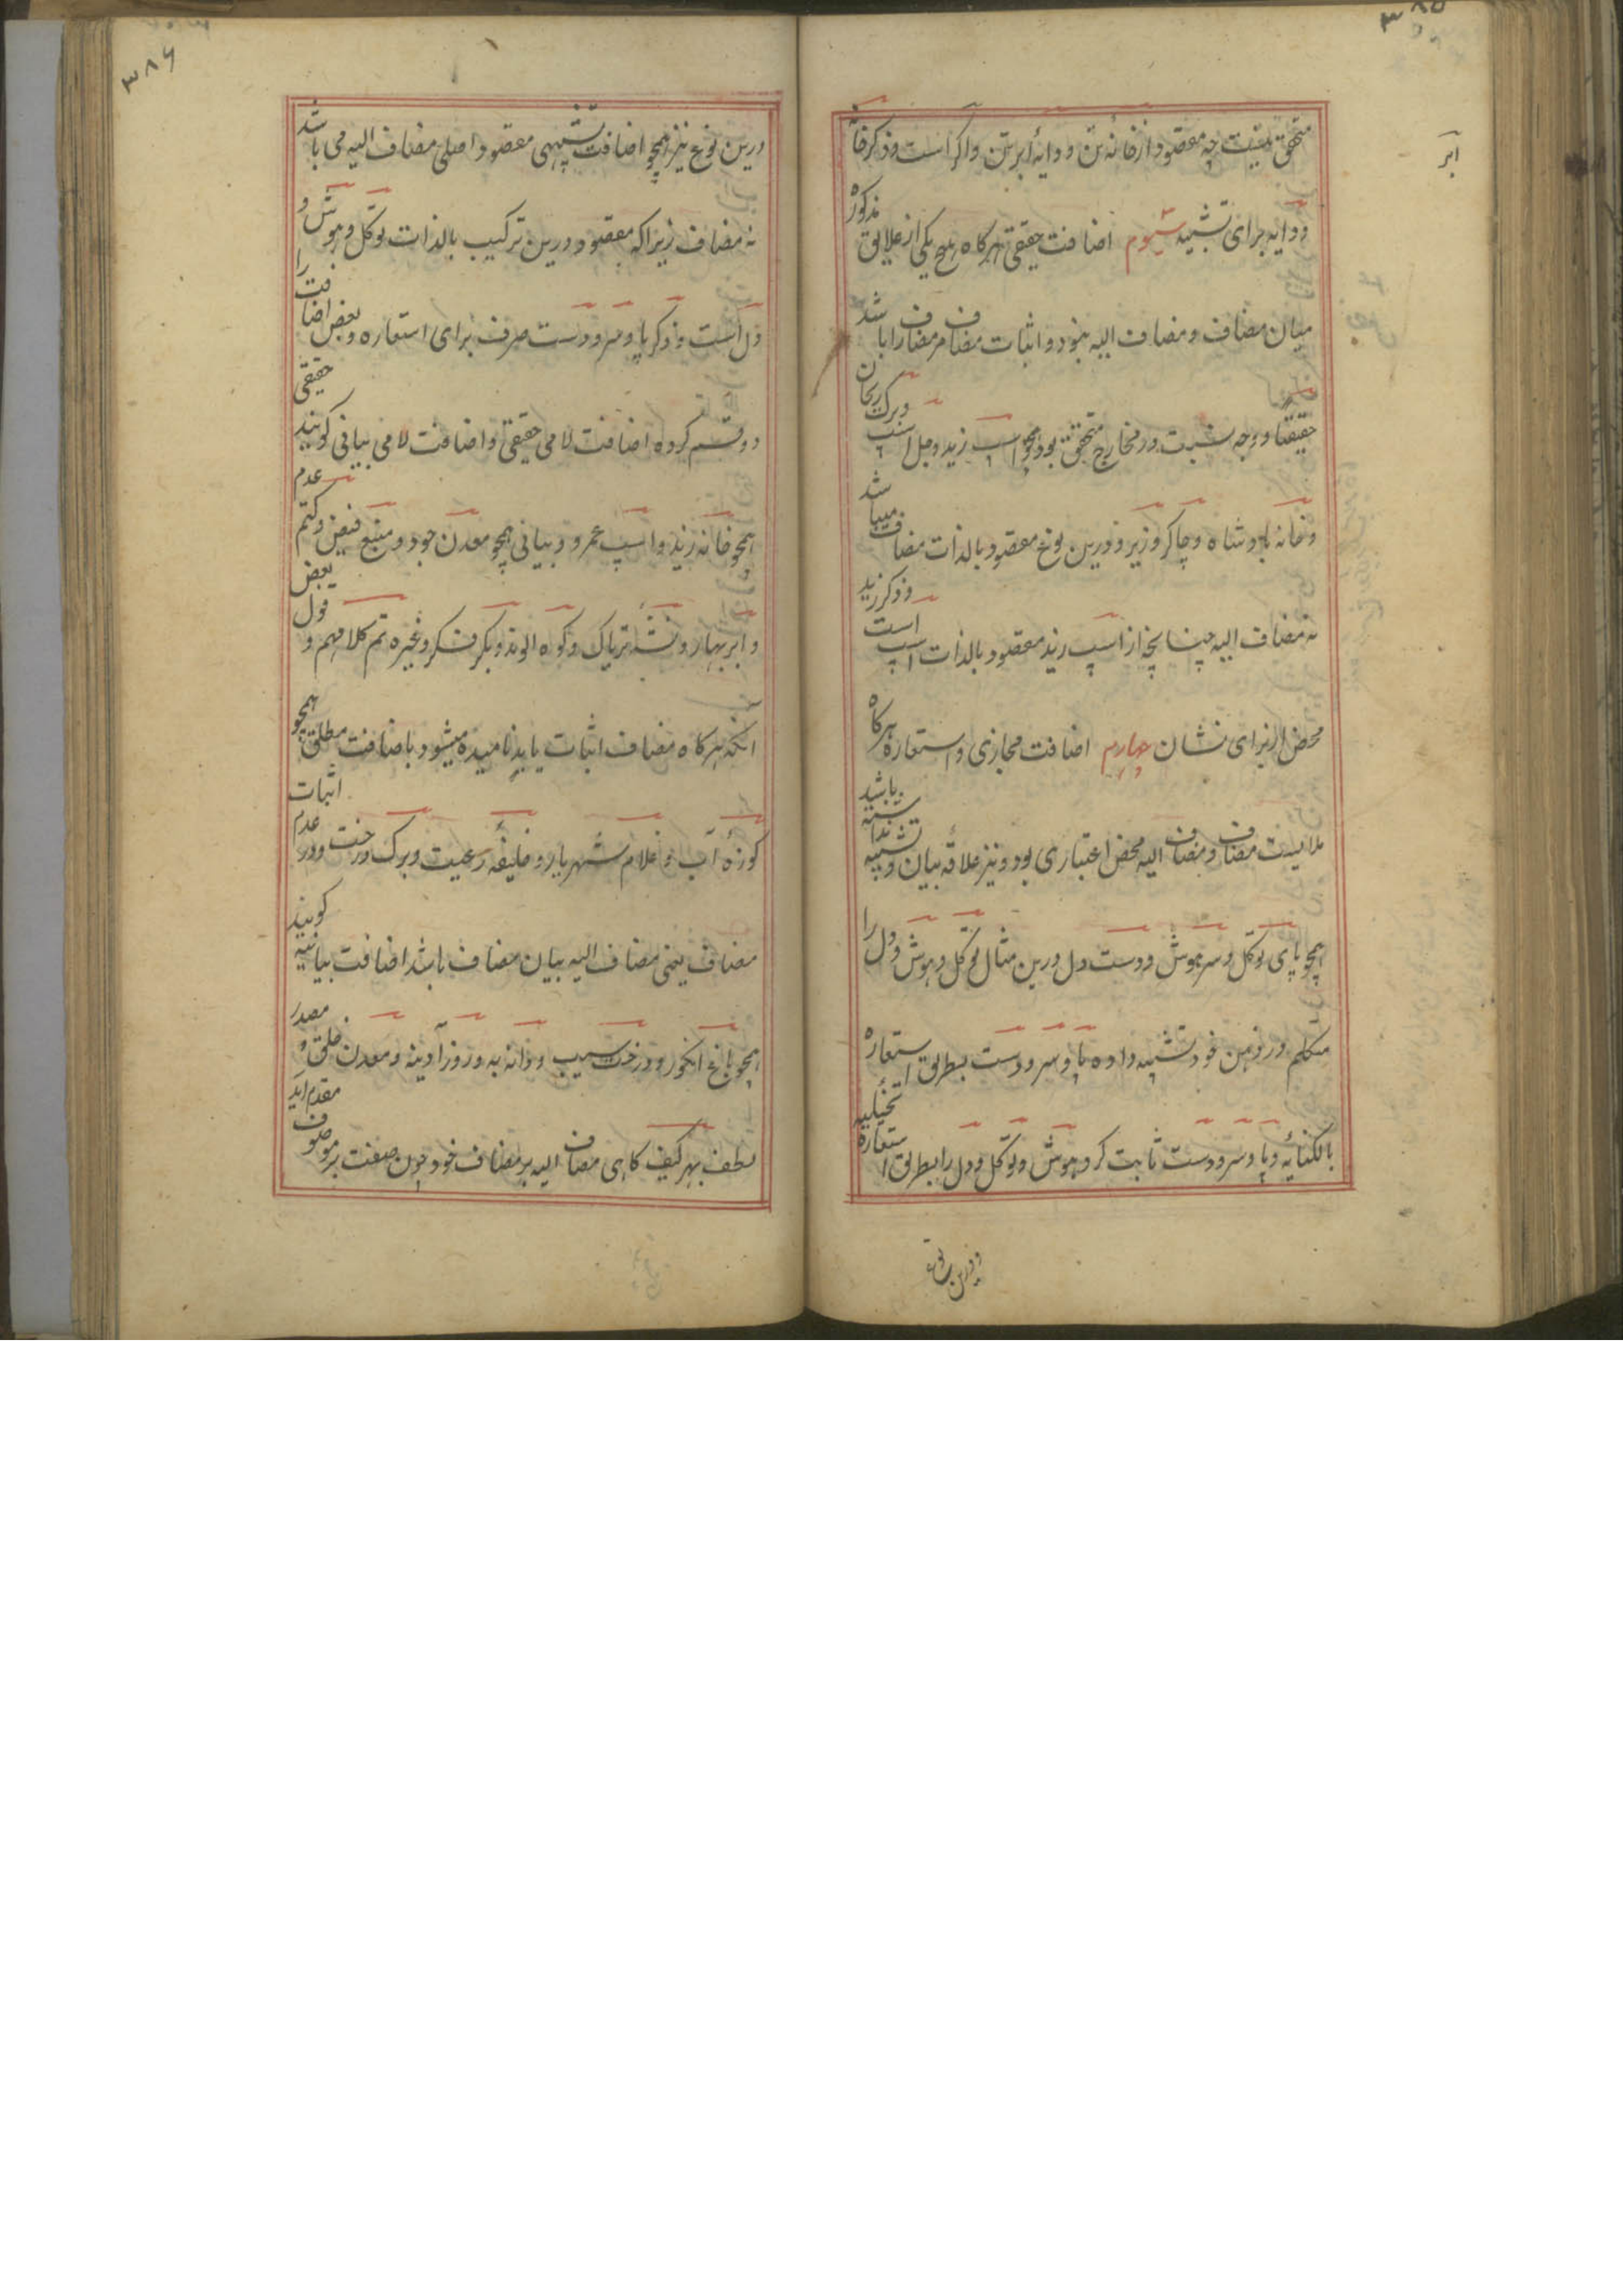 ۳۸۵
ابر
متحقق نیست چه مقصود از خانه تن و دایه ابر تن و اکر است و ذکر خانه
و دایه برای تشبیه سیوم اضافت حقیقی هرکاه هیچ یکی از علایق مذکوره
میان مضاف و مضاف الیه نبود و اثبات مضاف مر مضاف را باشد
حقیقتا و وجه نسبت در خارج متحقق بود همچو اسپ زید و جل اسپ و برک ریحان
و خانه بادشاه و چاکر وزیر و درین نوع مقصود بالذات مضاف میباشد
نه مضاف الیه چنانچه از اسپ زید مقصود بالذات اسپ است و ذکر زید
محض از برای نشان چهارم اضافت مجازی و استعاره هرکاه
ملابست مضاف و مضاف الیه محض اعتباری بود و نیز علاقه بیان و تشبیه نداشته باشد
همچو پای توکل و سر هوش و دست دل درین مثال توکل و هوش و دل را
متکلم در ذهن خود تشبیه داده پا و سر و دست بطریق استعاره
بالکنایه و پا و سر و دست ثابت کرد هوش و توکل و دل را بطریق استعاره تخئیلیه
و درین نوع
۳۸۶
درین نوع نیز همچو اضافت تشبیهی مقصود اصلی مضاف الیه می باشد
نه مضاف زیراکه مقصود درین ترکیب بالذات توکل و هوش و
دل است و ذکر پا و سر و دست صرف برای استعاره و بعض اضافت را
دو قسم کرده اضافت لامی حقیقی و اضافت لامی بیانی کویند حقیقی
همچو خانه زید و اسپ عمرو و بیانی همچو معدن جود و منبع فیض و کتم عدم
و ابر بهار و نشه تریاک و کوه الوند و بکر فکر و غیره تم کلامهم و قول بعض
آنکه هرکاه مضاف اثبات یابد نامیده میشود باضافت مطلق همچو
کوزه آب و غلام شهریار و خلیفه رعیت و برک درخت و در عدم اثبات
مضاف یعنی مضاف الیه بیان مضاف باشد اضافت بیانیه کویند
همچو باغ انکور و درخت سیب و دانه به و روز آدینه و معدن خلق و مصدر
لطف بهر کیف کاهی مضاف الیه بر مضاف خود چون صفت بر موصوف مقدم اید